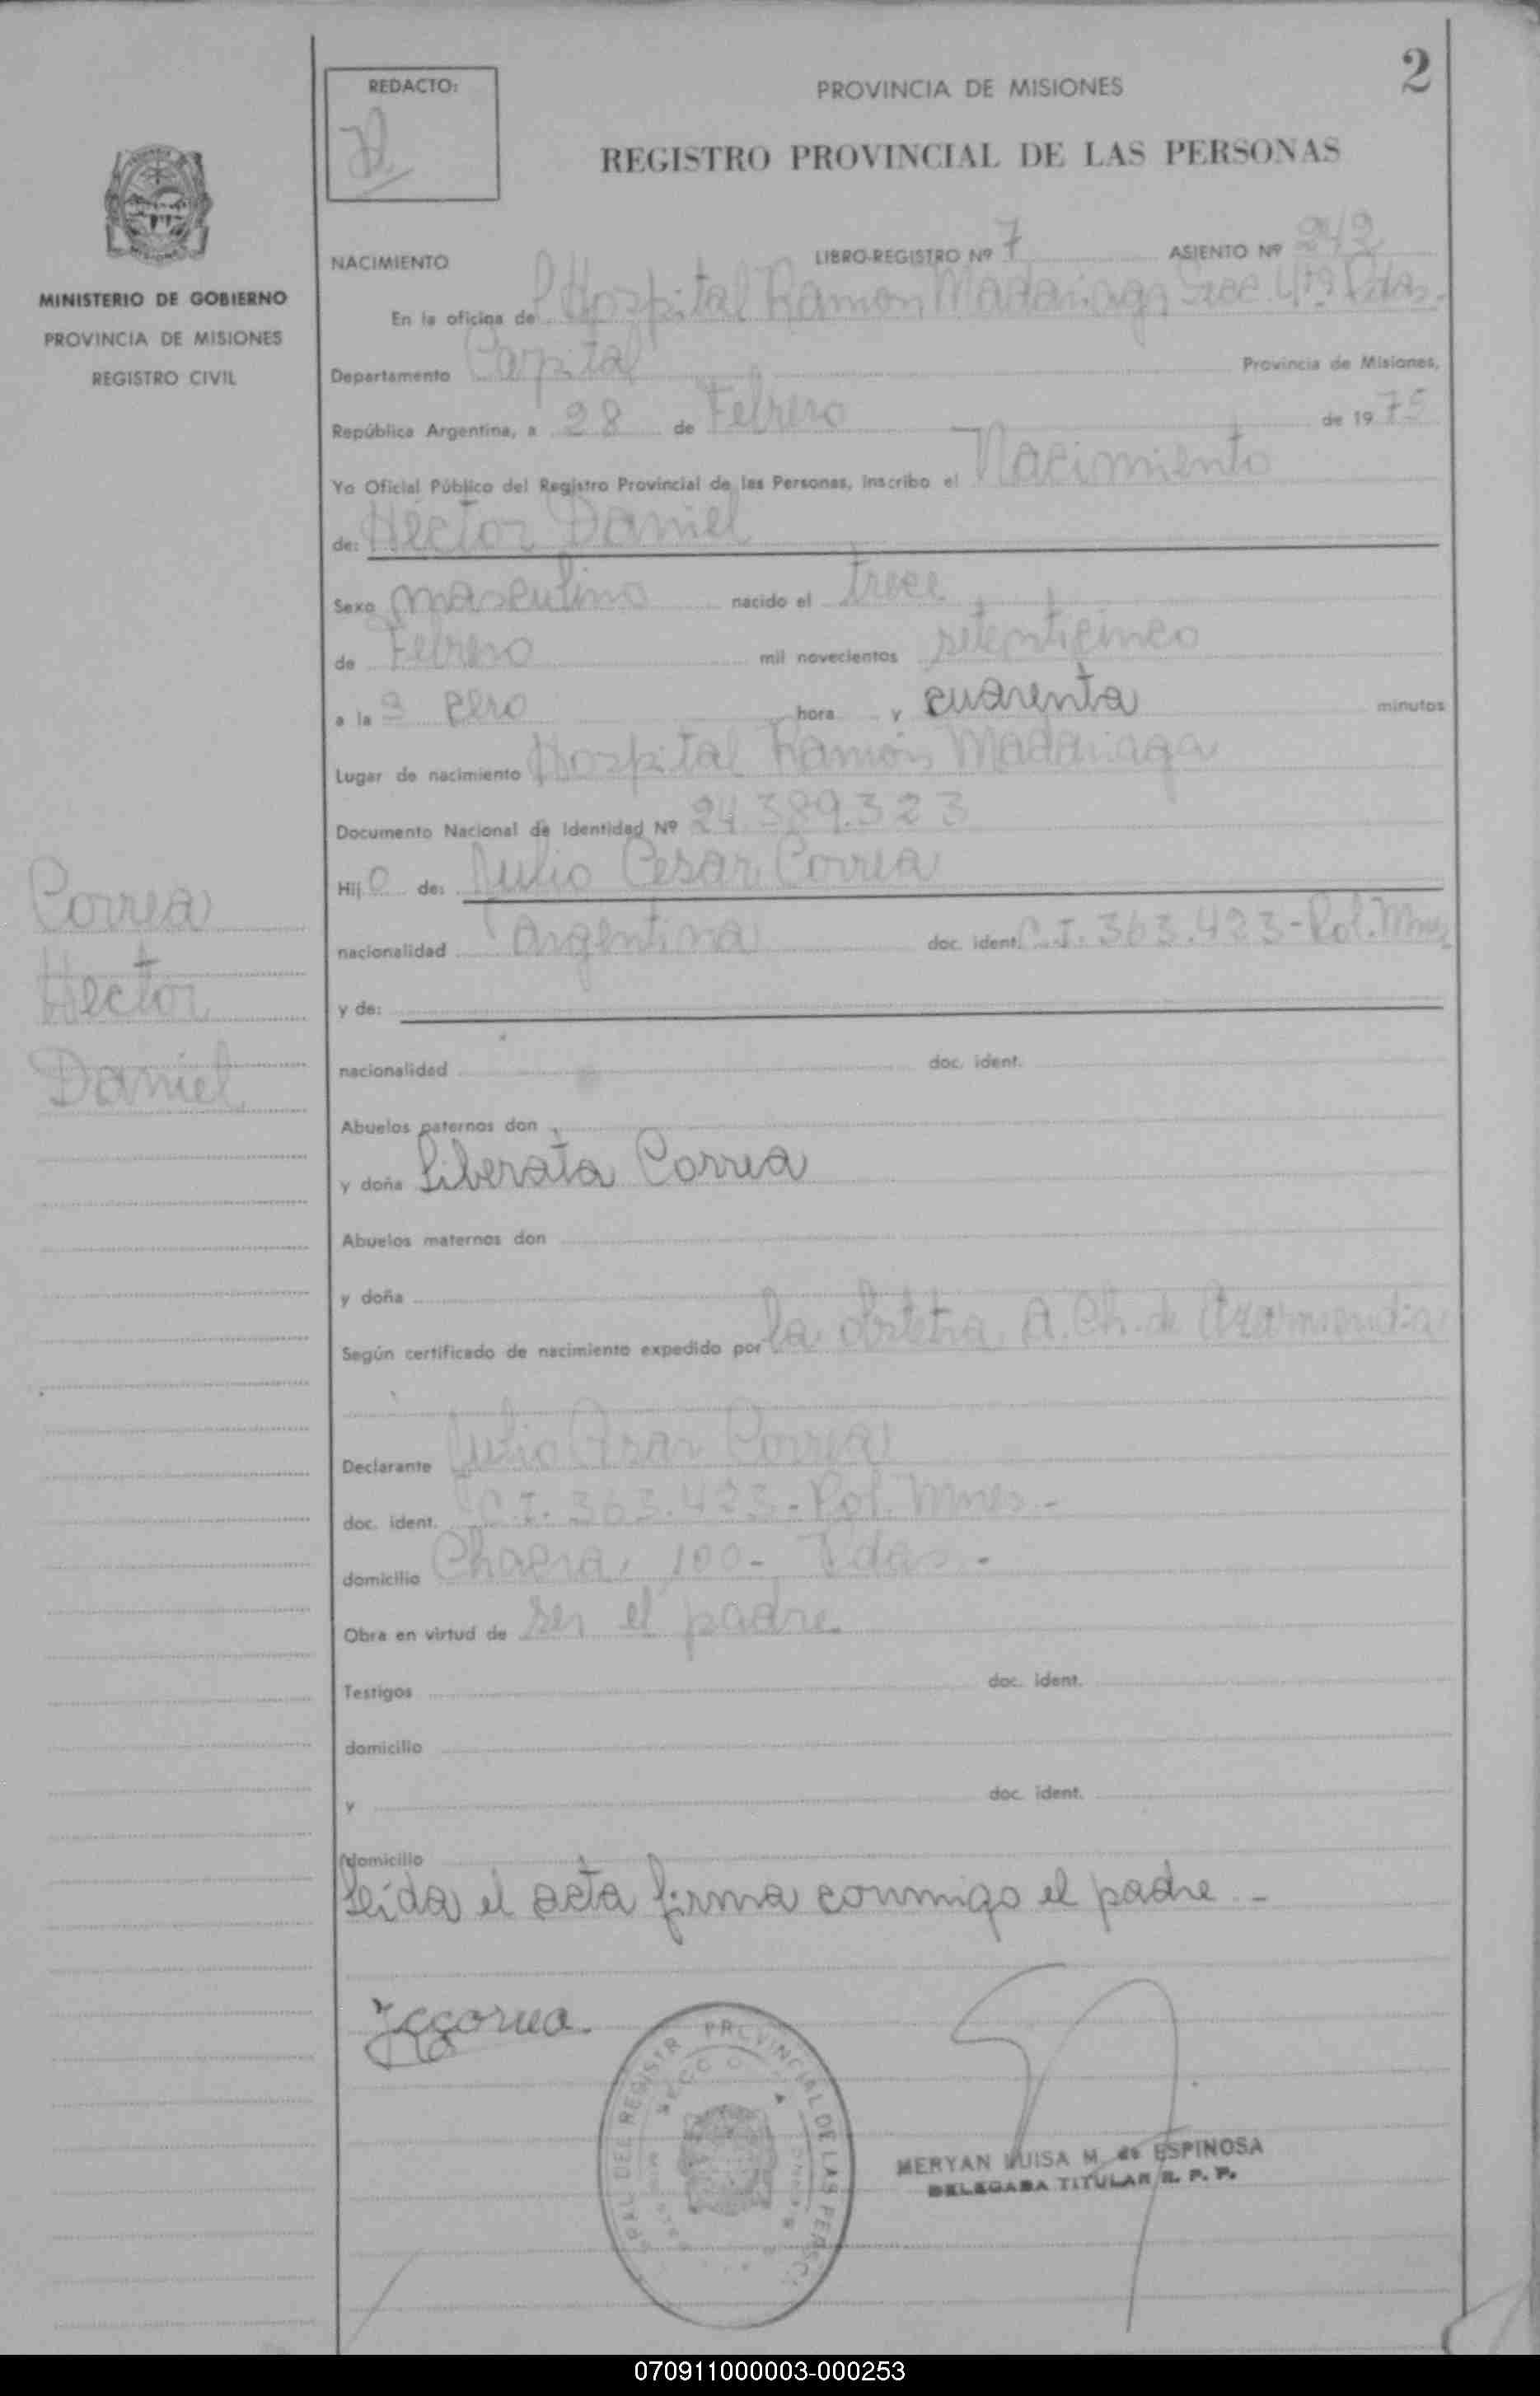 2
REDACTO:
PROVINCIA DE MISIONES
REGISTRO PROVINCIAL DE LAS PERSONAS
MINISTERIO DE GOBIERNO
PROVINCIA DE MISIONES
REGISTRO CIVIL
NACIMIENTO LIBRO-REGISTRO Nº 7 ASIENTO Nº 242
En la oficina de Hospital Ramon Madariaga Secc. 4ta Pdas.
Departamento Capital Provincia de Misiones,
República Argentina, a 28 de Febrero de 1975
Yo Oficial Público del Registro Provincial de las Personas, inscribo el Nacimiento
de: Héctor Daniel
Sexo masculino nacido el trece
de Febrero mil novecientos setenticinco
a la cero hora y cuarenta minutos
Lugar de nacimiento Hospital Ramón Madariaga
Documento Nacional de Identidad Nº 24.389.323
Hijo de: Julio Cesar Correa
nacionalidad Argentina doc. ident. C.I. 363.423-Pol. Mnes
y de:
nacionalidad doc. ident.
Correa
Hector
Daniel
Abuelos paternos don
y doña Liberata Correa
Abuelos maternos don
y doña
Según certificado de nacimiento expedido por la obstetra A. Ch. de Azamendia
Declarante Julio Cesar Correa
doc. ident. C.I. 363.423-Pol. Mnes.-
domicilio Chacra, 100- Pdas.-
Obra en virtud de ser el padre
Testigos doc. ident.
domicilio
y doc. ident.
domicilio
Leida el acta firma conmigo el padre.-
JCCorrea.
PROVINCIAL DE LAS
DEL REGISTR
MERYAN LUISA M. de ESPINOSA
DELEGADA TITULAR R. P. P.
070911000003-000253